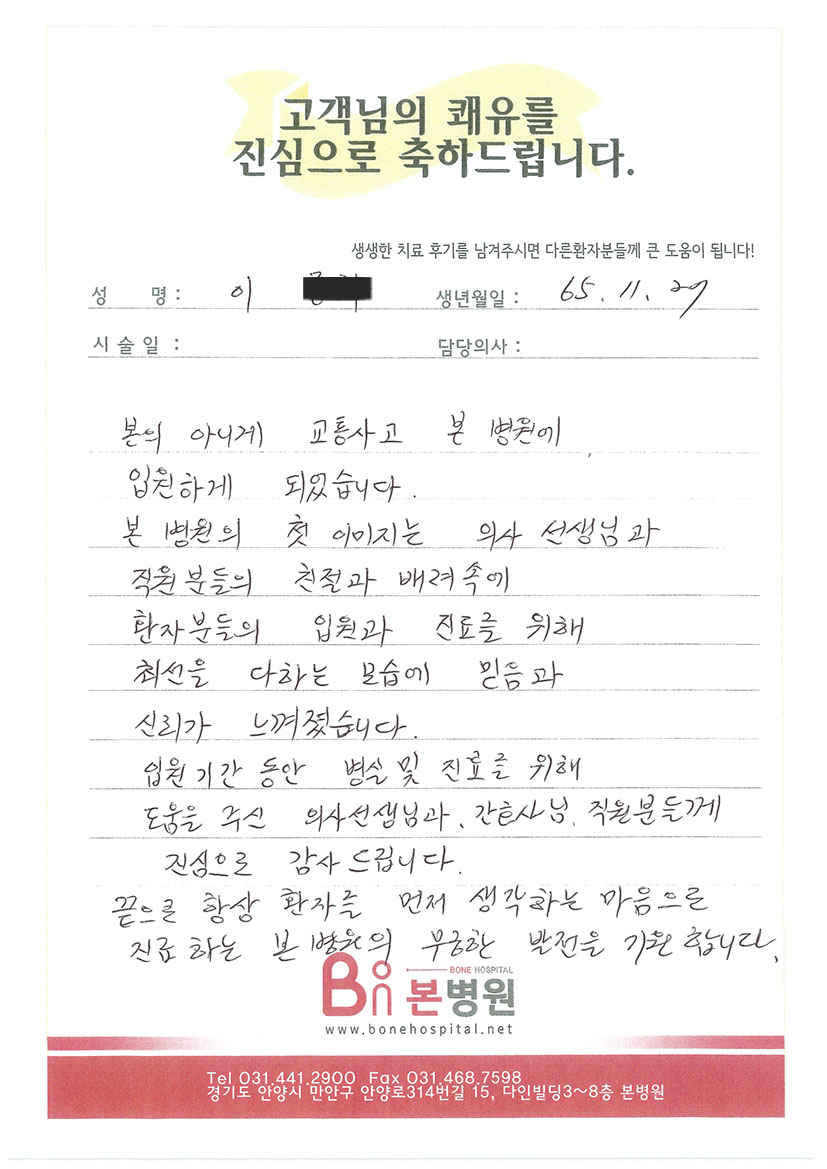 고객님의 쾌유를
진심으로 축하드립니다.
생생한 치료 후기를 남겨주시면 다른환자분들께 큰 도움이 됩니다!
성 명 : 이 생년월일 : 65. 11. 27
시 술 일 : 담당의사 :
본의 아니게 교통사고 본 병원에
입원하게 되었습니다.
본 병원의 첫 이미지는 의사 선생님과
직원분들의 친절과 배려속에
환자분들의 입원과 진료를 위해
최선을 다하는 모습에 믿음과
신뢰가 느껴졌습니다.
입원기간 동안 병실 및 진료를 위해
도움을 주신 의사선생님과, 간호사님, 직원분들께
진심으로 감사드립니다.
끝으론 항상 환자를 먼저 생각하는 마음으로
진료 하는 본 병원의 무궁한 발전을 기원 합니다.
Bon BONE HOSPITAL
본병원
www.bonehospital.net
Tel 031.441.2900 Fax 031.468.7598
경기도 안양시 만안구 안양로314번길 15, 다인빌딩3~8층 본병원